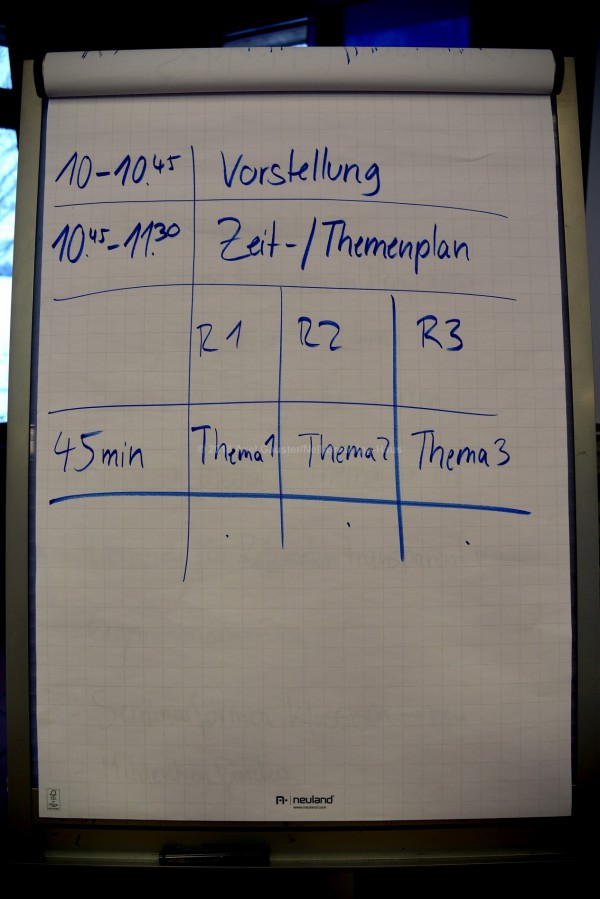 10-10.45 Vorstellung
10.45-11.30 Zeit-/Themenplan
R1 R2 R3
45min Thema1 Thema2 Thema3
neuland
www.neuland.com